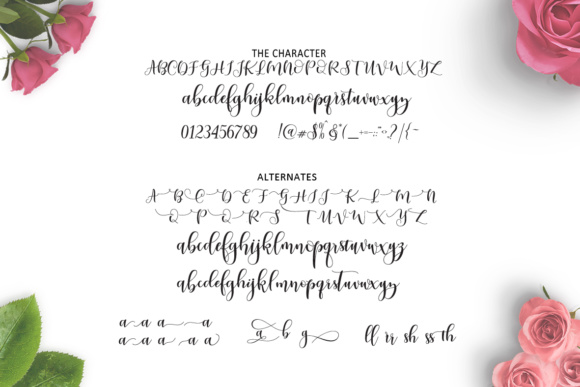 THE CHARACTER
ABCDEFGHIJKLMNOPQRSTUVWXYZ
abcdefghijklmnopqrstuvwxyz
0123456789 !@#$%&*(_+=-:;"<>,?/{~
ALTERNATES
A B C D E F G H I J K L M N
O P Q R S T U V W X Y Z
abcdefghijklmnopqrstuvwxyz
abcdefghijklmnopqrstuvwxyz
a a a a a b g ll rr sh ss th
a a a a a